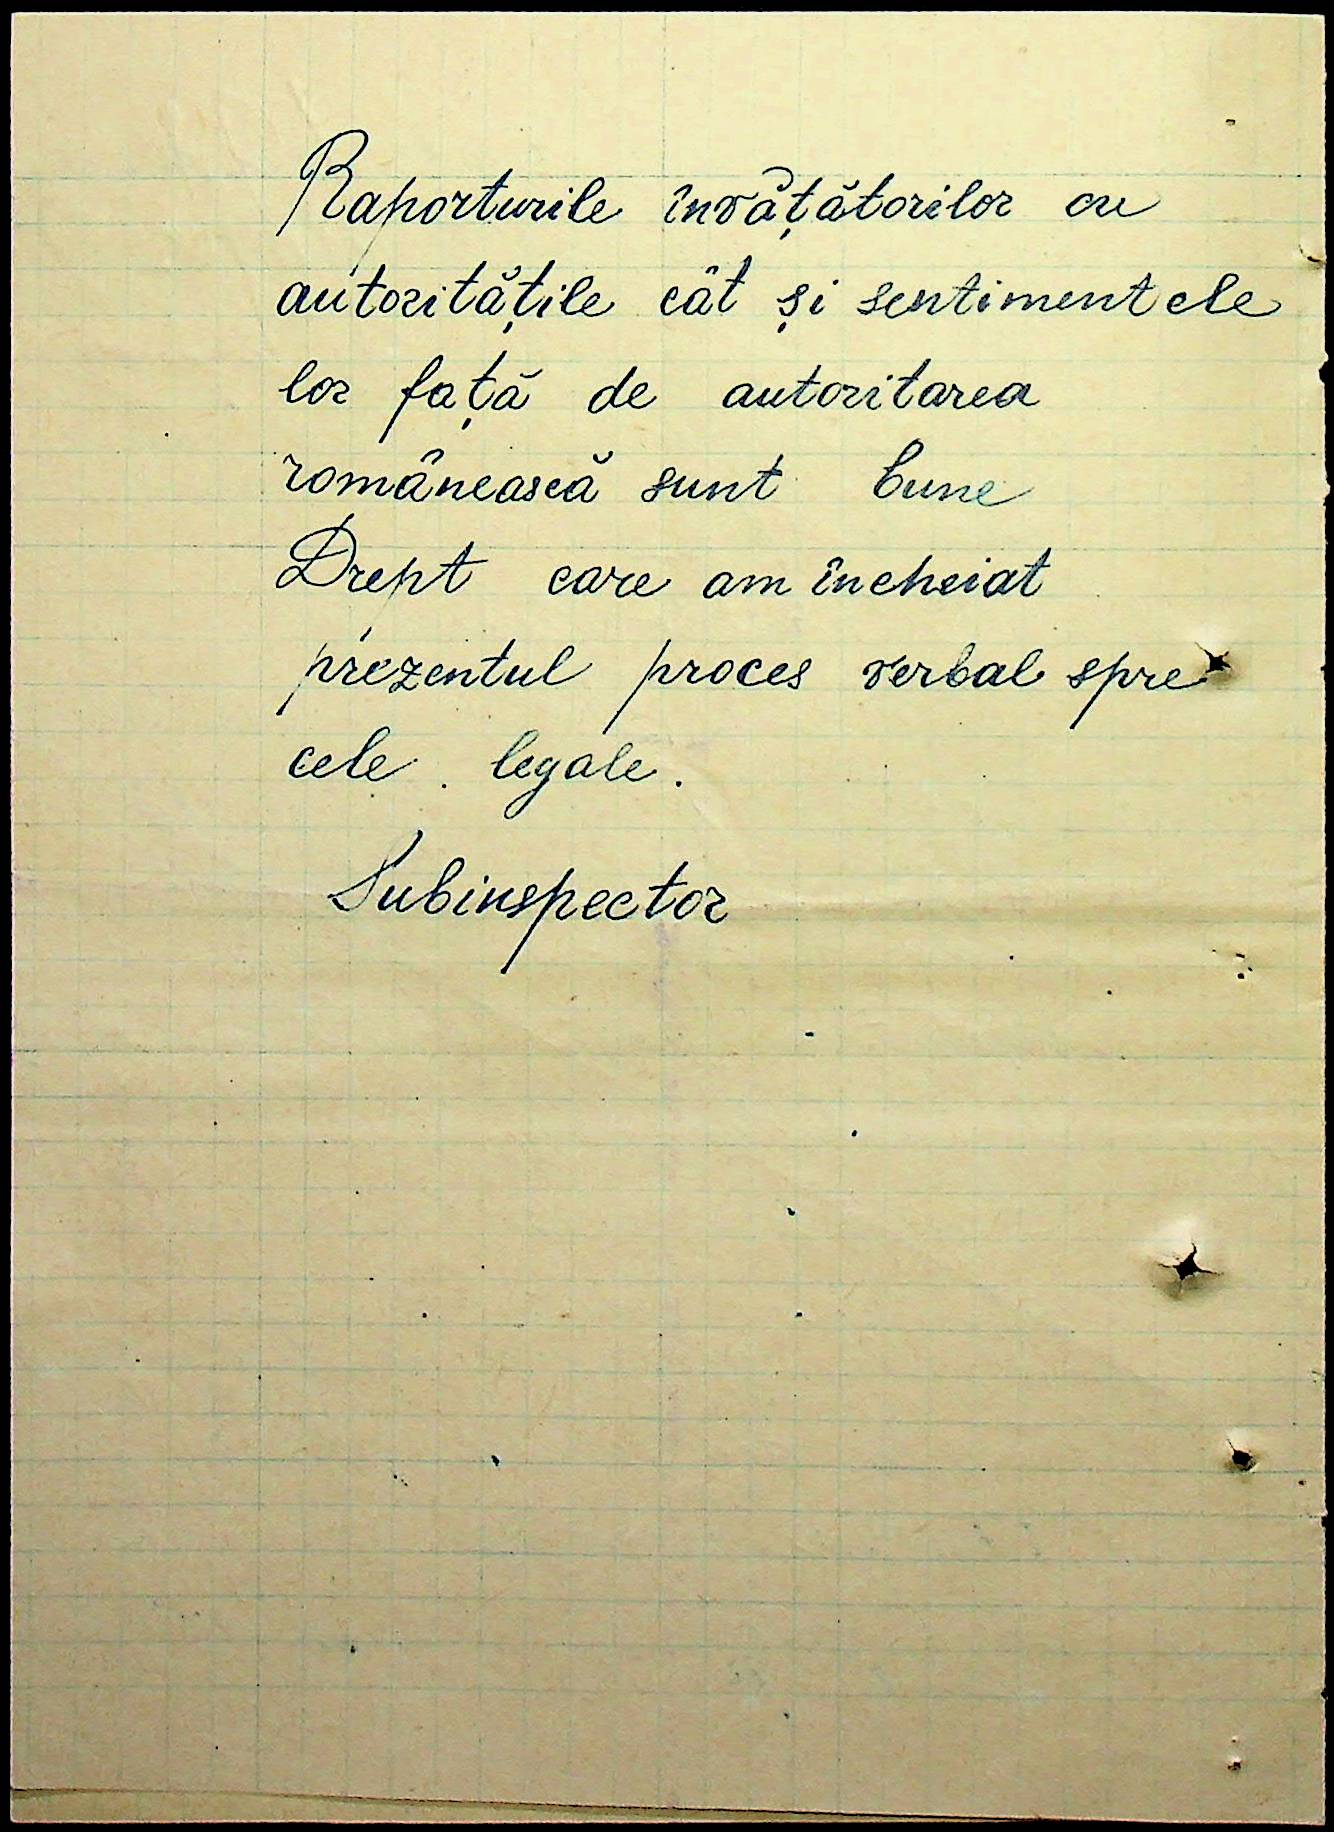 Raporturile învățătorilor cu
autoritățile cât și sentimentele
lor față de autoritarea
românească sunt bune
Drept care am încheiat
prezentul proces verbal spre
cele legale.
Subinspector